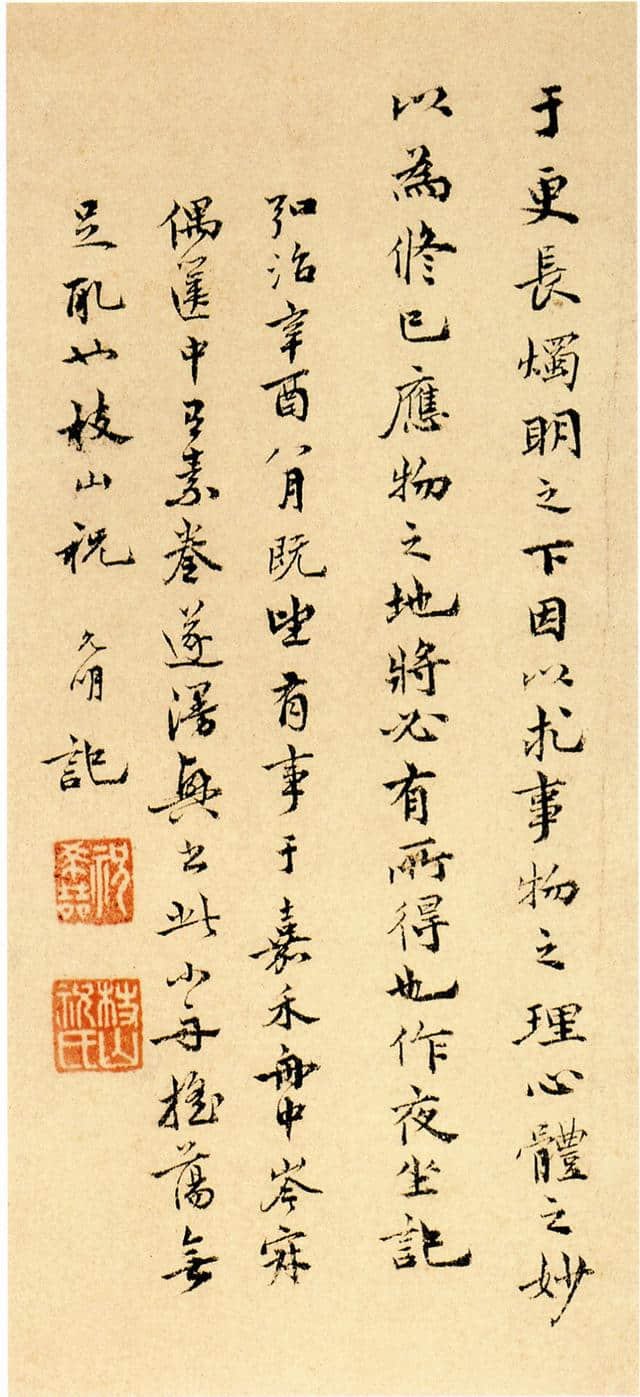 于更長燭明之下因以求事物之理心體之妙
以為修己應物之地將必有所得也作夜坐記
弘治辛酉八月既望有事于嘉禾舟中岑寂
偶篋中有素卷遂漫興書此小舟搖蕩無
足取也枝山祝允明記
祝希哲
枝山祝氏